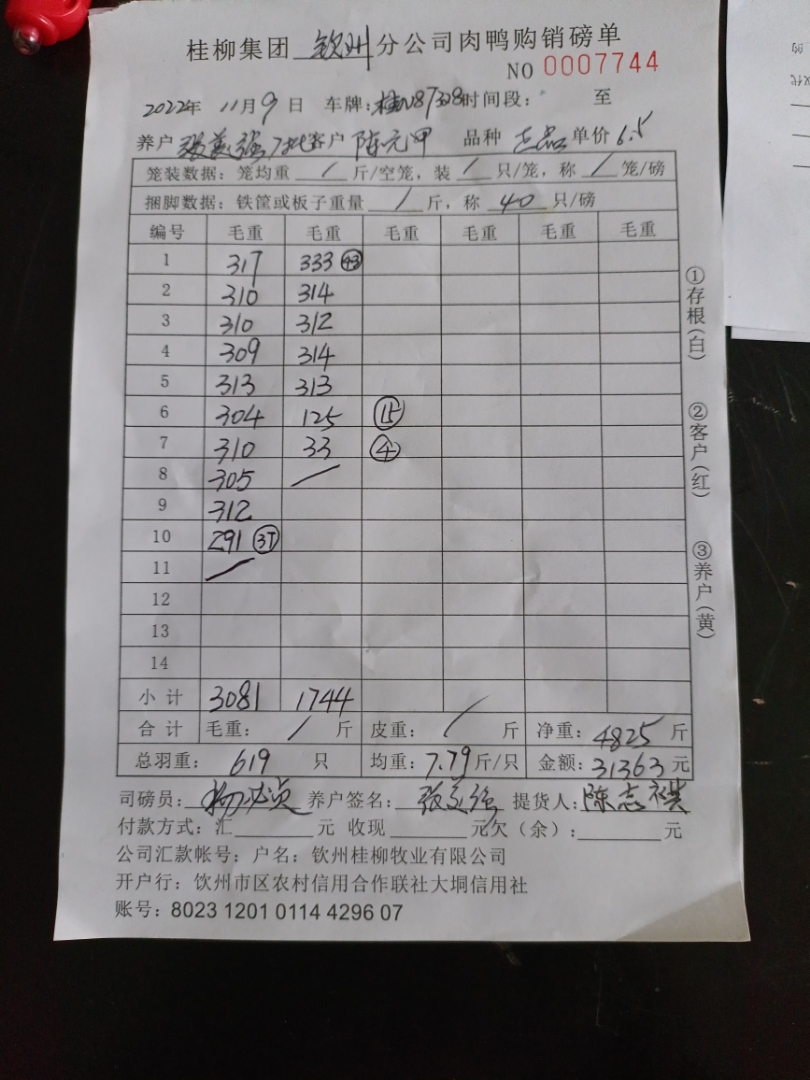 桂柳集团 钦州 分公司肉鸭购销磅单
NO 0007744
2022年 11月9日 车牌:桂N87328 时间段: 至
养户 客户 陈元甲 品种 单价 6.5
笼装数据: 笼均重 / 斤/空笼, 装 / 只/笼, 称 / 笼/磅
捆脚数据: 铁筐或板子重量 / 斤, 称 40 只/磅
编号 毛重 毛重 毛重 毛重 毛重 毛重
1 317 333 ㊸
2 310 314
3 310 312
4 309 314
5 313 313
6 304 125 ⑮
7 310 33 ④
8 305 /
9 312
10 291 ㊲
11 /
12
13
14
小计 3081 1744
合计 毛重: / 斤 皮重: / 斤 净重: 4825 斤
总羽重: 619 只 均重: 7.79 斤/只 金额: 31363 元
司磅员: 养户签名: 提货人: 陈志
付款方式: 汇 元 收现 元欠(余): 元
公司汇款帐号: 户名: 钦州桂柳牧业有限公司
开户行: 钦州市区农村信用合作联社大垌信用社
账号: 8023 1201 0114 4296 07
①存根(白)
②客户(红)
③养户(黄)